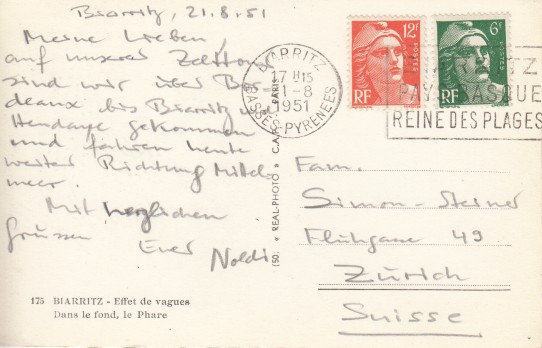 Biarritz, 21.8.51
Meine Lieben,
auf unserer
sind wir über Bor
deaux bis Biarritz
Hendaye gekommen
und fahren heute
weiter Richtung Mittel
meer.
Mit herzlichen
Grüssen Euer Noldi
175 BIARRITZ - Effet de vagues
Dans le fond, le Phare
(50. « REAL-PHOTO »
BIARRITZ
17 H 15
21-8
1951
BASSES-PYRENEES
12F
POSTES
RF
6F
POSTES
RF
BIARRITZ
PAYS BASQUE
REINE DES PLAGES
Fam.
Simon-Steiner
Fluhgasse 49
Zürich
Suisse